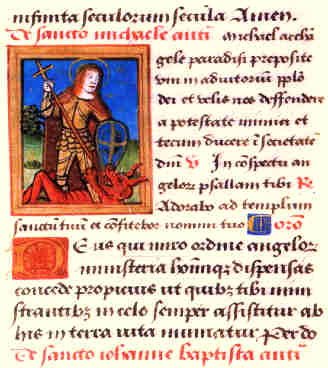 infinita seculorum secula Amen.
De sancto michaele antī Michael archā
gele paradisi preposite
veni in adiutoriū pplo
dei et velis nos deffendere
a potestate inimici et
tecum ducere ī societatē
dnī ℣ In cōspectu an
gelorꝝ psallam tibi ℟
Adorabo ad templum
sanctum tuū et cōfitebor nomini tuo Orō
Deus qui miro ordine angelorꝝ
ministeria hoīmqꝫ dispensas
concede propicius ut quibꝫ tibi mini
strantibꝫ in celo semper assistitur ab
his in terra vita muniatur Per do
De sancto iohanne baptista antī